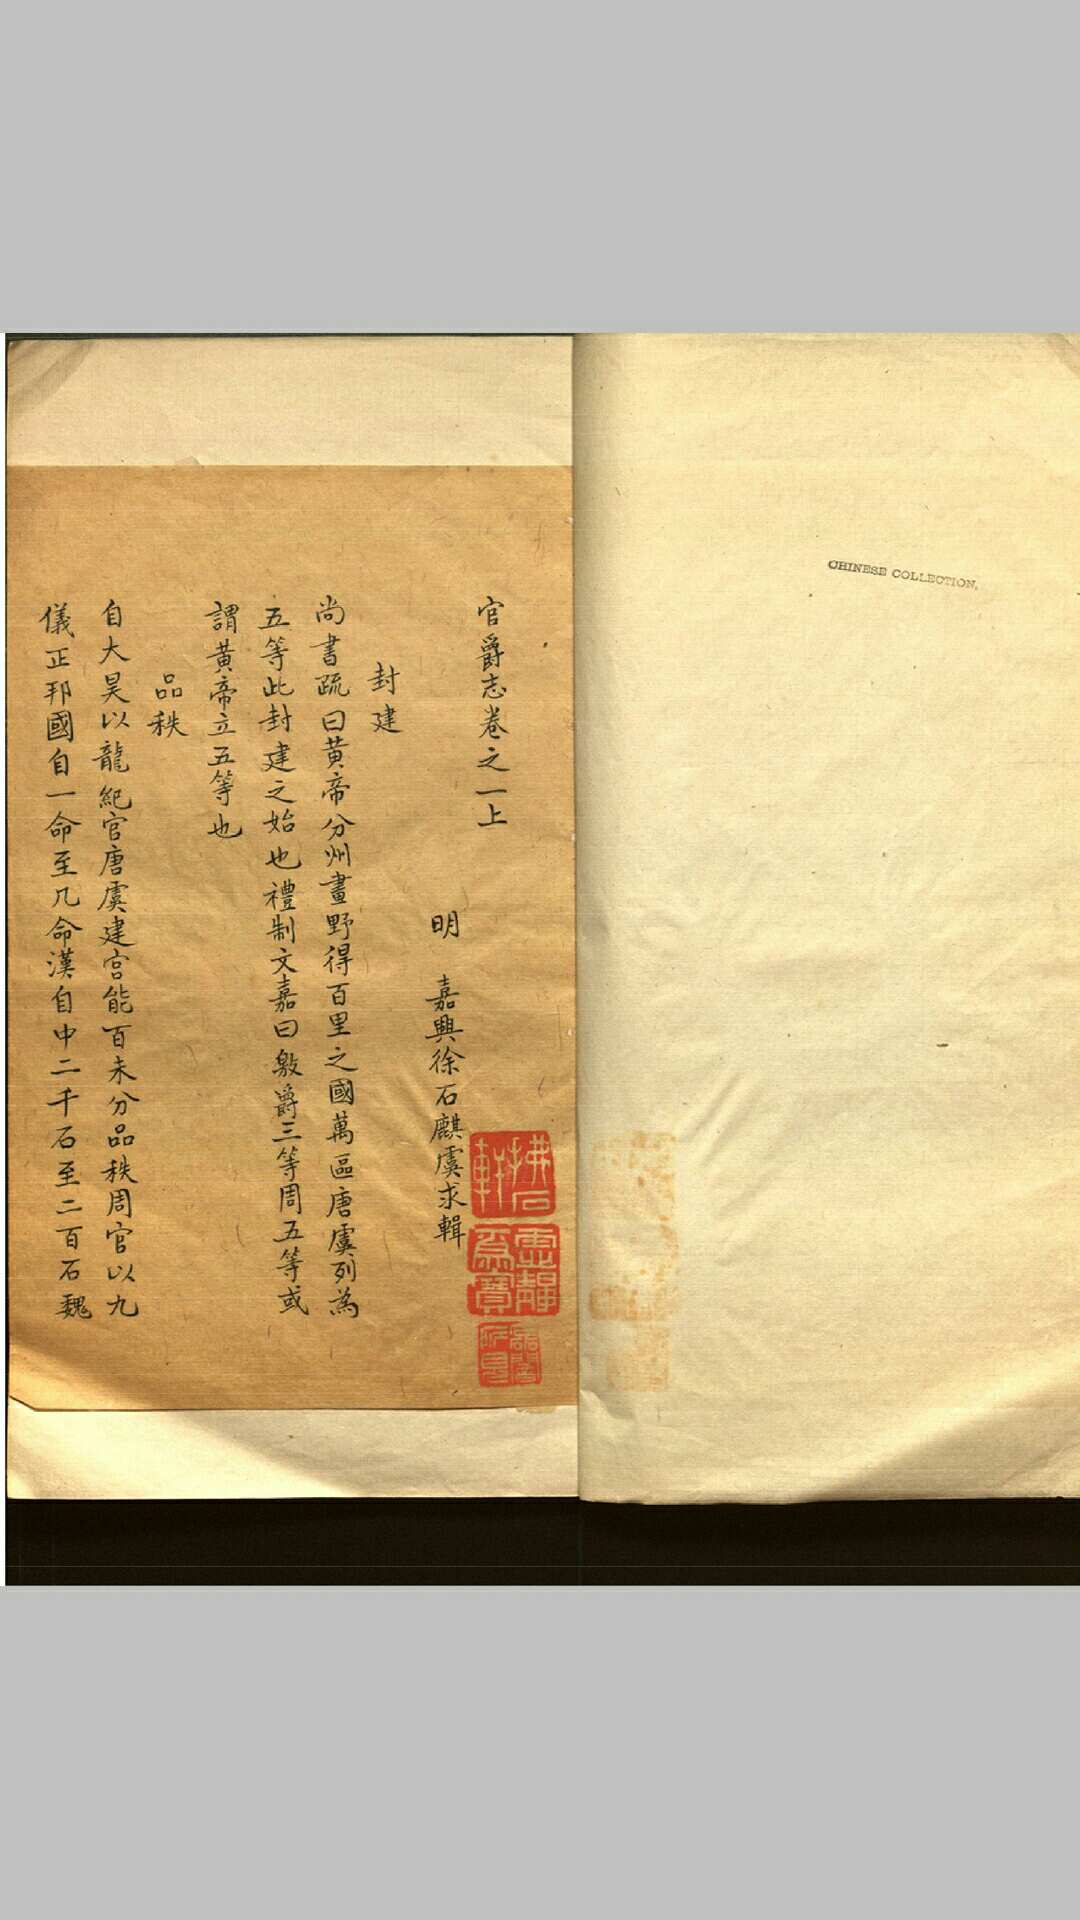 CHINESE COLLECTION.
官爵志卷之一上
明 嘉興徐石麒虞求輯
封建
尚書疏曰黄帝分州畫野得百里之國萬區唐虞列為
五等此封建之始也禮制文嘉曰殷爵三等周五等或
謂黄帝立五等也
品秩
自大昊以龍紀官唐虞建宫能百未分品秩周官以九
儀正邦國自一命至几命漢自中二千石至二百石魏
拂石軒
虛靜為寶
所見